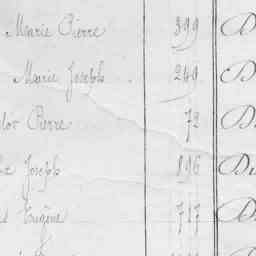 Marie Pierre 399 D
Marie Joseph 249 D
Pierre 72 D
Joseph 196 Du
Eugène 717 D